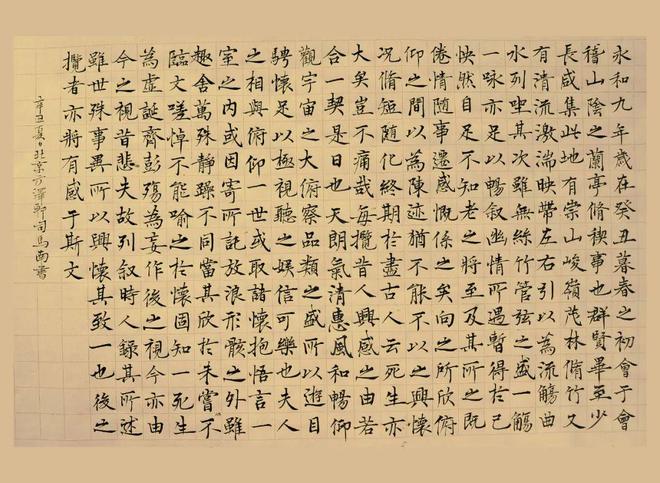 永和九年歲在癸丑暮春之初會于會
稽山陰之蘭亭脩稧事也群賢畢至少
長咸集此地有崇山峻嶺茂林脩竹又
有清流激湍映帶左右引以為流觴曲
水列坐其次雖無絲竹管弦之盛一觴
一咏亦足以暢叙幽情所遇暫得於己
怏然自足不知老之將至及其所之既
倦情隨事遷感慨係之矣向之所欣俯
仰之間以為陳迹猶不能不以之興懷
况脩短隨化終期於盡古人云死生亦
大矣豈不痛哉每攬昔人興感之由若
合一契是日也天朗氣清惠風和暢仰
觀宇宙之大俯察品類之盛所以遊目
騁懷足以極視聽之娛信可樂也夫人
之相與俯仰一世或取諸懷抱悟言一
室之內或因寄所託放浪形骸之外雖
趣舍萬殊靜躁不同當其欣於未嘗不
臨文嗟悼不能喻之於懷固知一死生
為虛誕齊彭殤為妄作後之視今亦由
今之視昔悲夫故列叙時人錄其所述
雖世殊事異所以興懷其致一也後之
攬者亦將有感于斯文
辛丑夏日北京方澤軒司馬南書